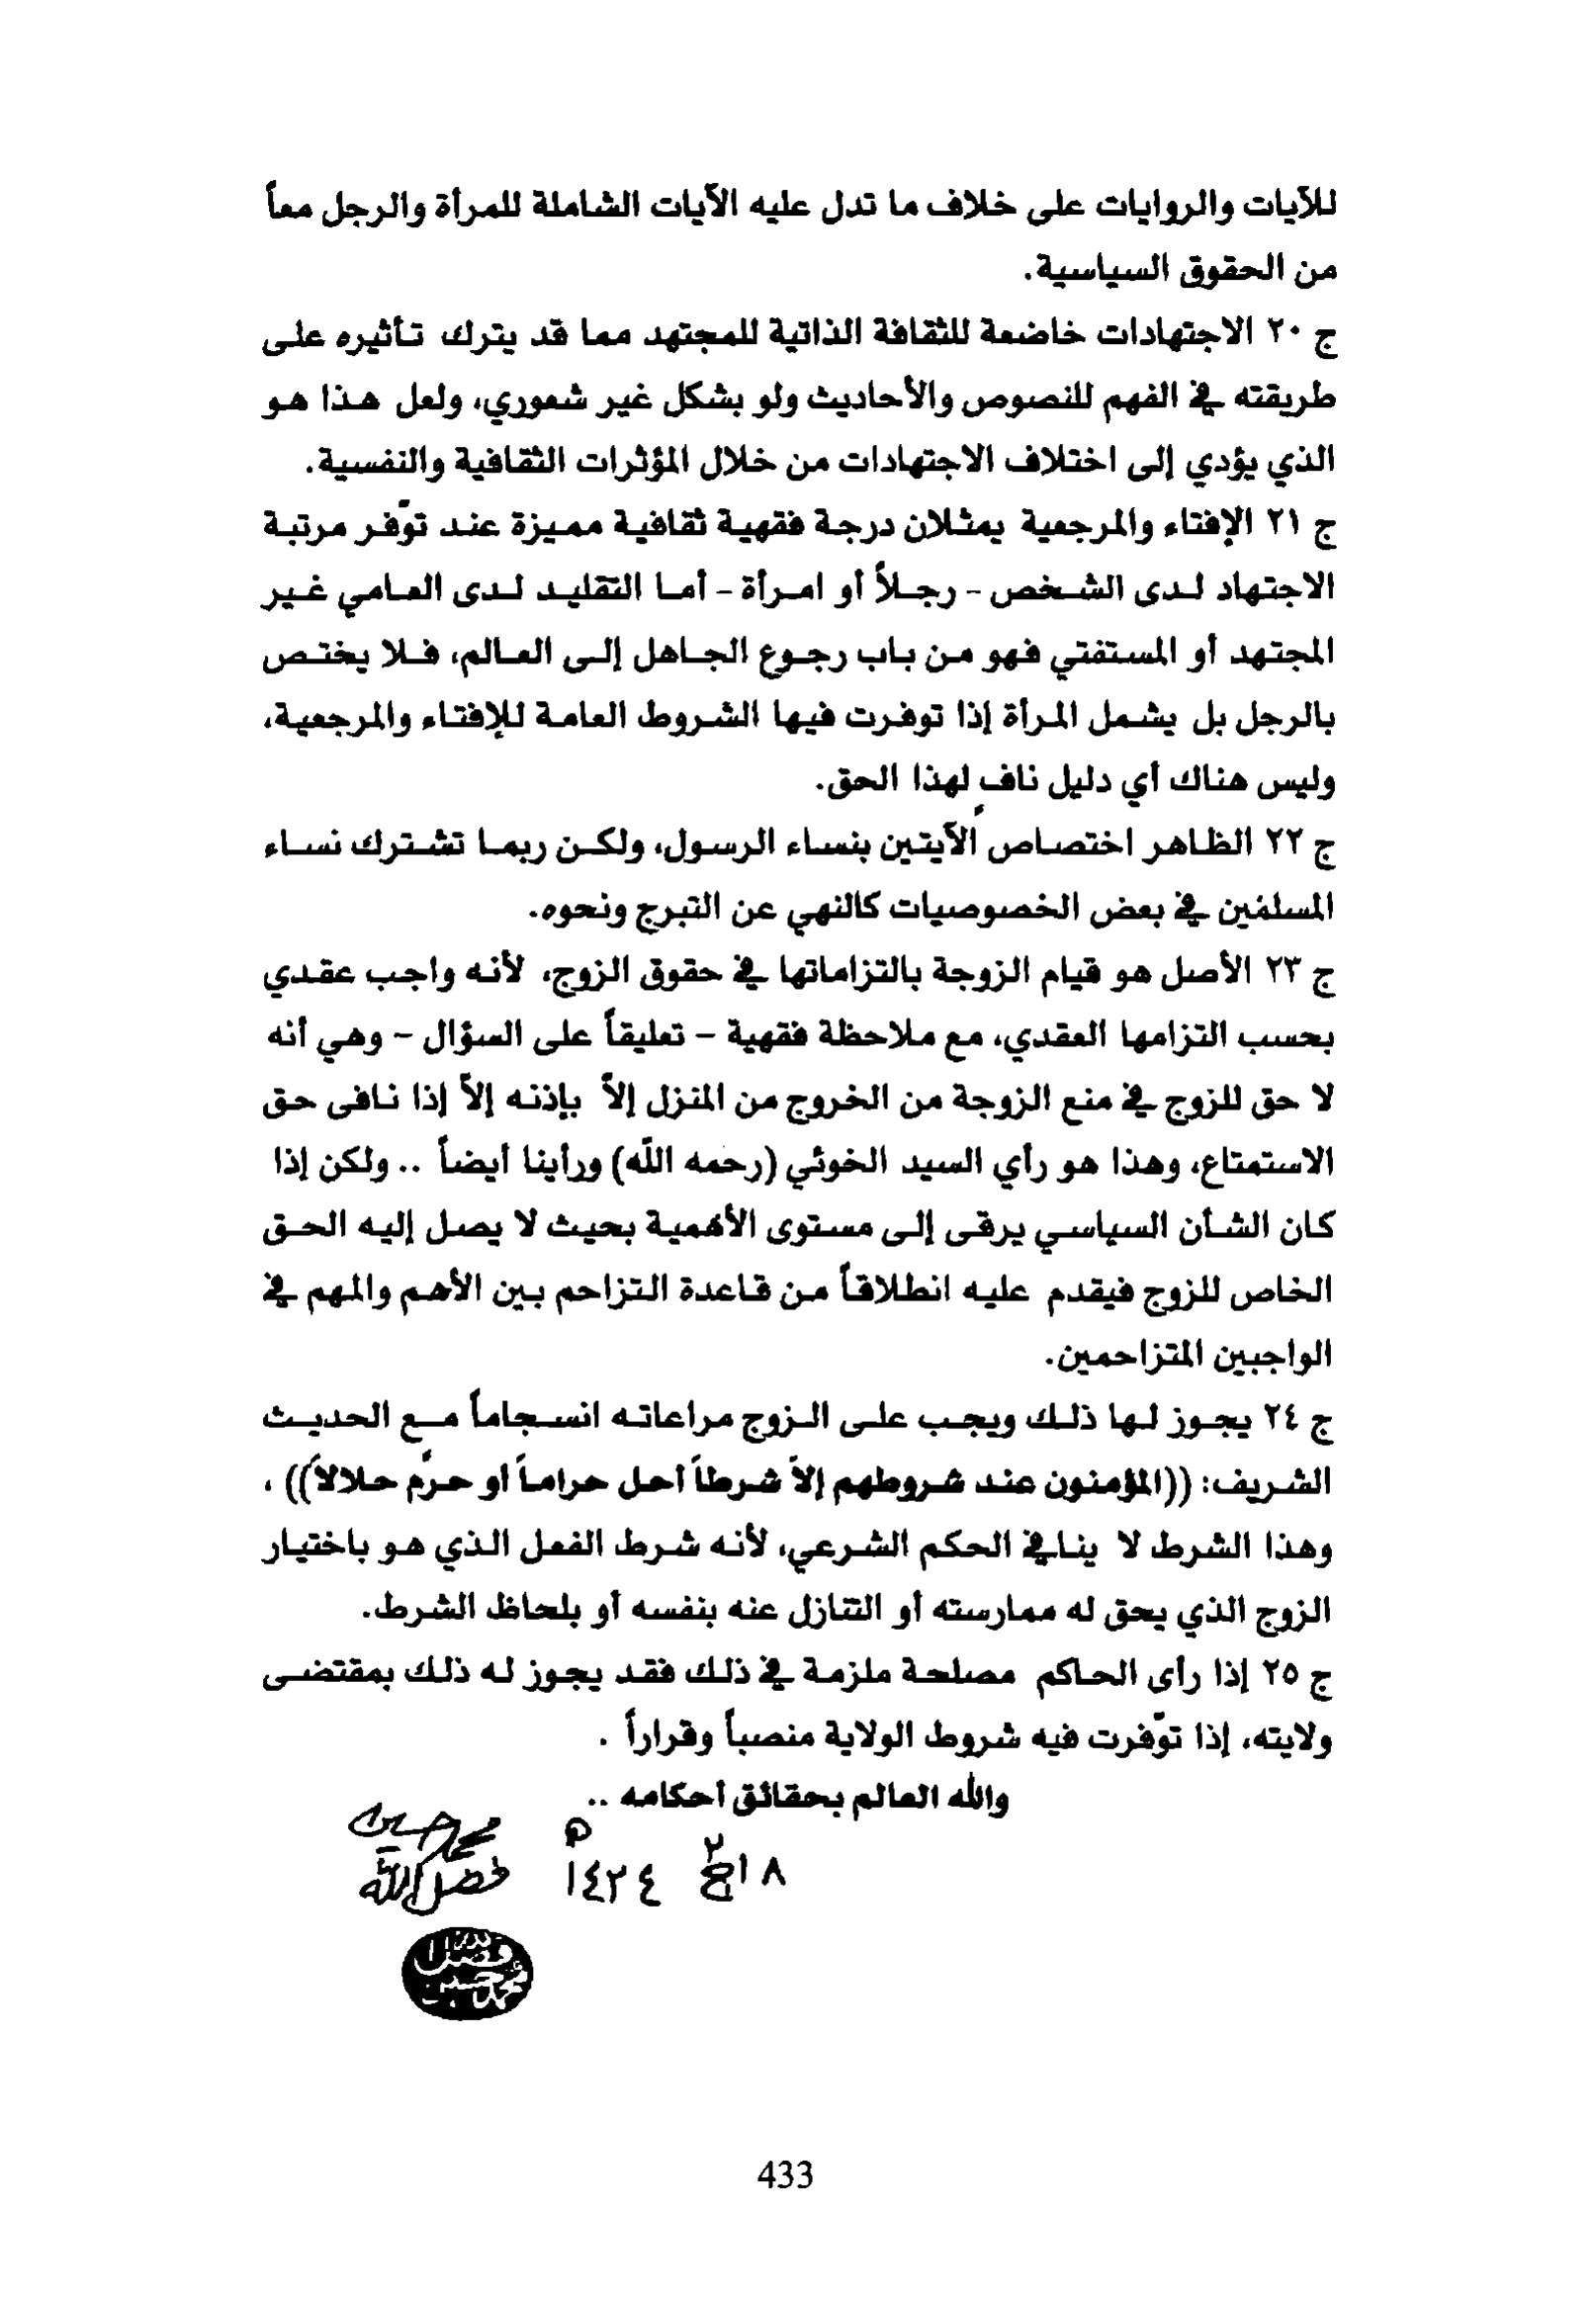 للآيات والروايات على خلاف ما تدل عليه الآيات الشاملة للمرأة والرجل معاً
من الحقوق السياسية.
ج ٢٠ الاجتهادات خاضعة للثقافة الذاتية للمجتهد مما قد يترك تأثيره على
طريقته في الفهم للنصوص والأحاديث ولو بشكل غير شعوري، ولعل هذا هو
الذي يؤدي إلى اختلاف الاجتهادات من خلال المؤثرات الثقافية والنفسية.
ج ٢١ الإفتاء والمرجعية يمثلان درجة فقهية ثقافية مميزة عند توّفر مرتبة
الاجتهاد لدى الشخص - رجلاً أو امرأة - أما التقليد لدى العامي غير
المجتهد أو المستفتي فهو من باب رجوع الجاهل إلى العالم، فلا يختص
بالرجل بل يشمل المرأة إذا توفرت فيها الشروط العامة للإفتاء والمرجعية،
وليس هناك أي دليل نافٍ لهذا الحق.
ج ٢٢ الظاهر اختصاص الآيتين بنساء الرسول، ولكن ربما تشترك نساء
المسلمين في بعض الخصوصيات كالنهي عن التبرج ونحوه.
ج ٢٣ الأصل هو قيام الزوجة بالتزاماتها في حقوق الزوج، لأنه واجب عقدي
بحسب التزامها العقدي، مع ملاحظة فقهية - تعليقاً على السؤال - وهي أنه
لا حق للزوج في منع الزوجة من الخروج من المنزل إلاّ بإذنه إلاّ إذا نافى حق
الاستمتاع، وهذا هو رأي السيد الخوئي (رحمه الله) ورأينا أيضاً .. ولكن إذا
كان الشأن السياسي يرقى إلى مستوى الأهمية بحيث لا يصل إليه الحق
الخاص للزوج فيقدم عليه انطلاقاً من قاعدة التزاحم بين الأهم والمهم في
الواجبين المتزاحمين.
ج ٢٤ يجوز لها ذلك ويجب على الزوج مراعاته انسجاماً مع الحديث
الشريف: ((المؤمنون عند شروطهم إلاّ شرطاً أحل حراماً أو حرّم حلالاً)) ،
وهذا الشرط لا ينافي الحكم الشرعي، لأنه شرط الفعل الذي هو باختيار
الزوج الذي يحق له ممارسته أو التنازل عنه بنفسه أو بلحاظ الشرط.
ج ٢٥ إذا رأى الحاكم مصلحة ملزمة في ذلك فقد يجوز له ذلك بمقتضى
ولايته، إذا توّفرت فيه شروط الولاية منصباً وقراراً .
والله العالم بحقائق أحكامه ..
١٨ ج٢ ١٤٢٤ه
محمد حسين
فضل الله
فضل الله
محمد حسين
433